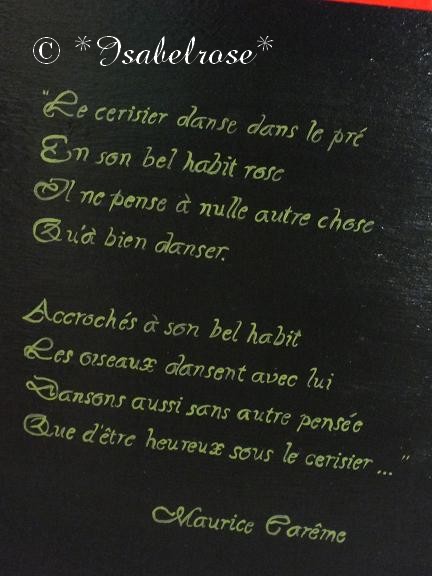 © *Isabelrose*
"Le cerisier danse dans le pré
En son bel habit rose
Il ne pense à nulle autre chose
Qu'à bien danser.
Accrochés à son bel habit
Les oiseaux dansent avec lui
Dansons aussi sans autre pensée
Que d'être heureux sous le cerisier ..."
Maurice Carême